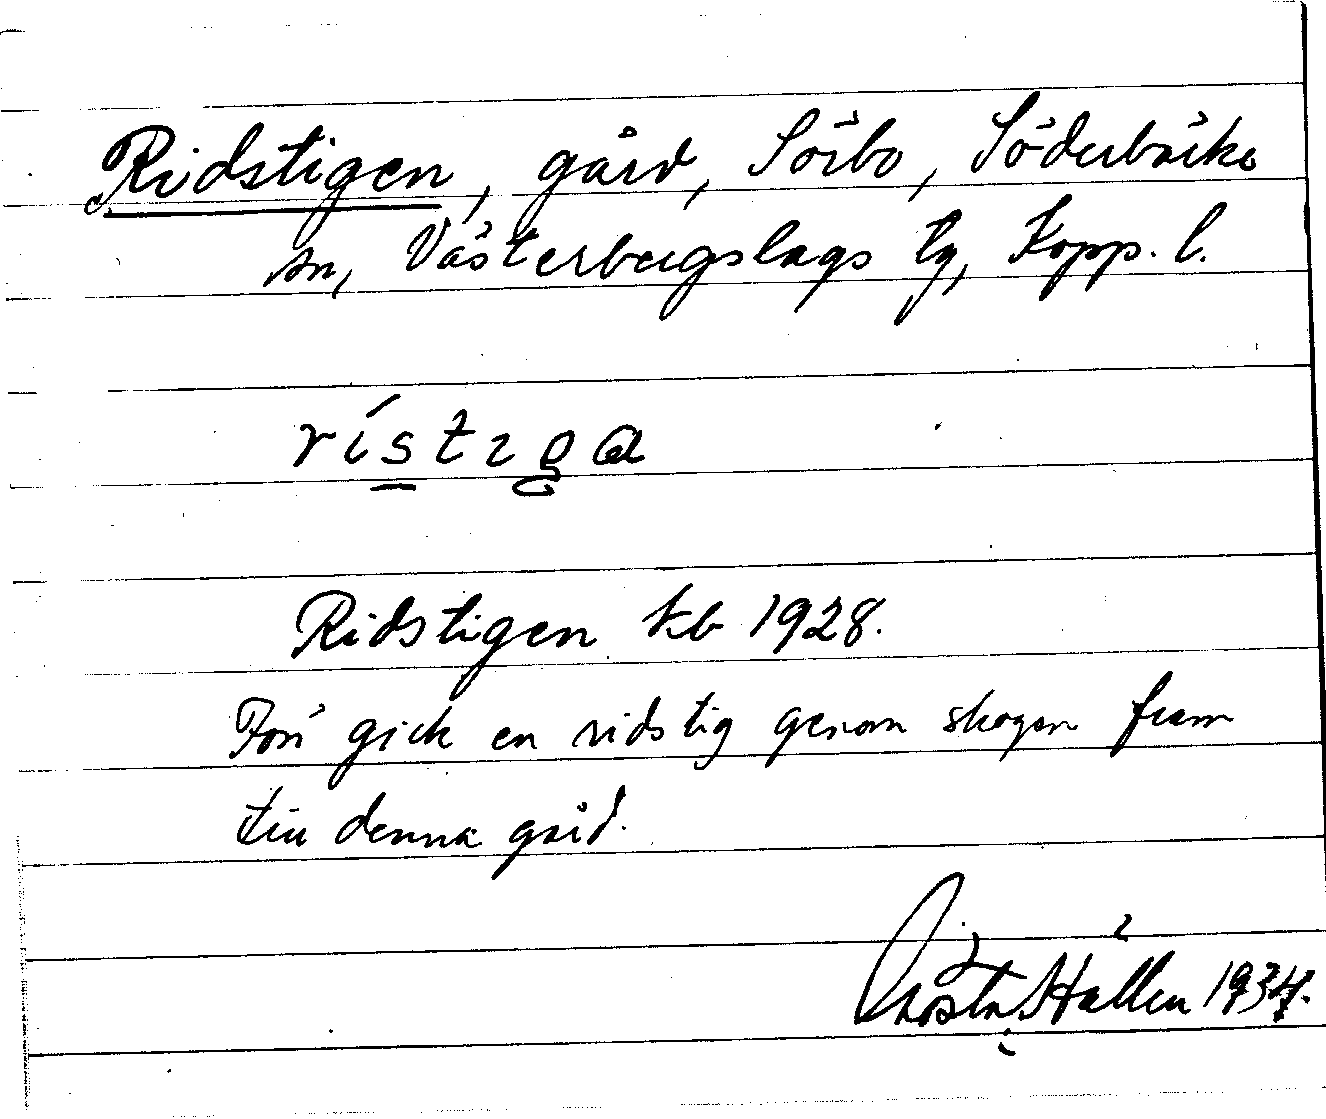 Ridstigen, gård, Sörbo, Söderbärke
sn, Västerbergslags tg, Kopp. l.
rístɩga
Ridstigen kb 1928.
Förr gick en ridstig genom skogen fram
till denna gård.
Gösta Hållén 1934.